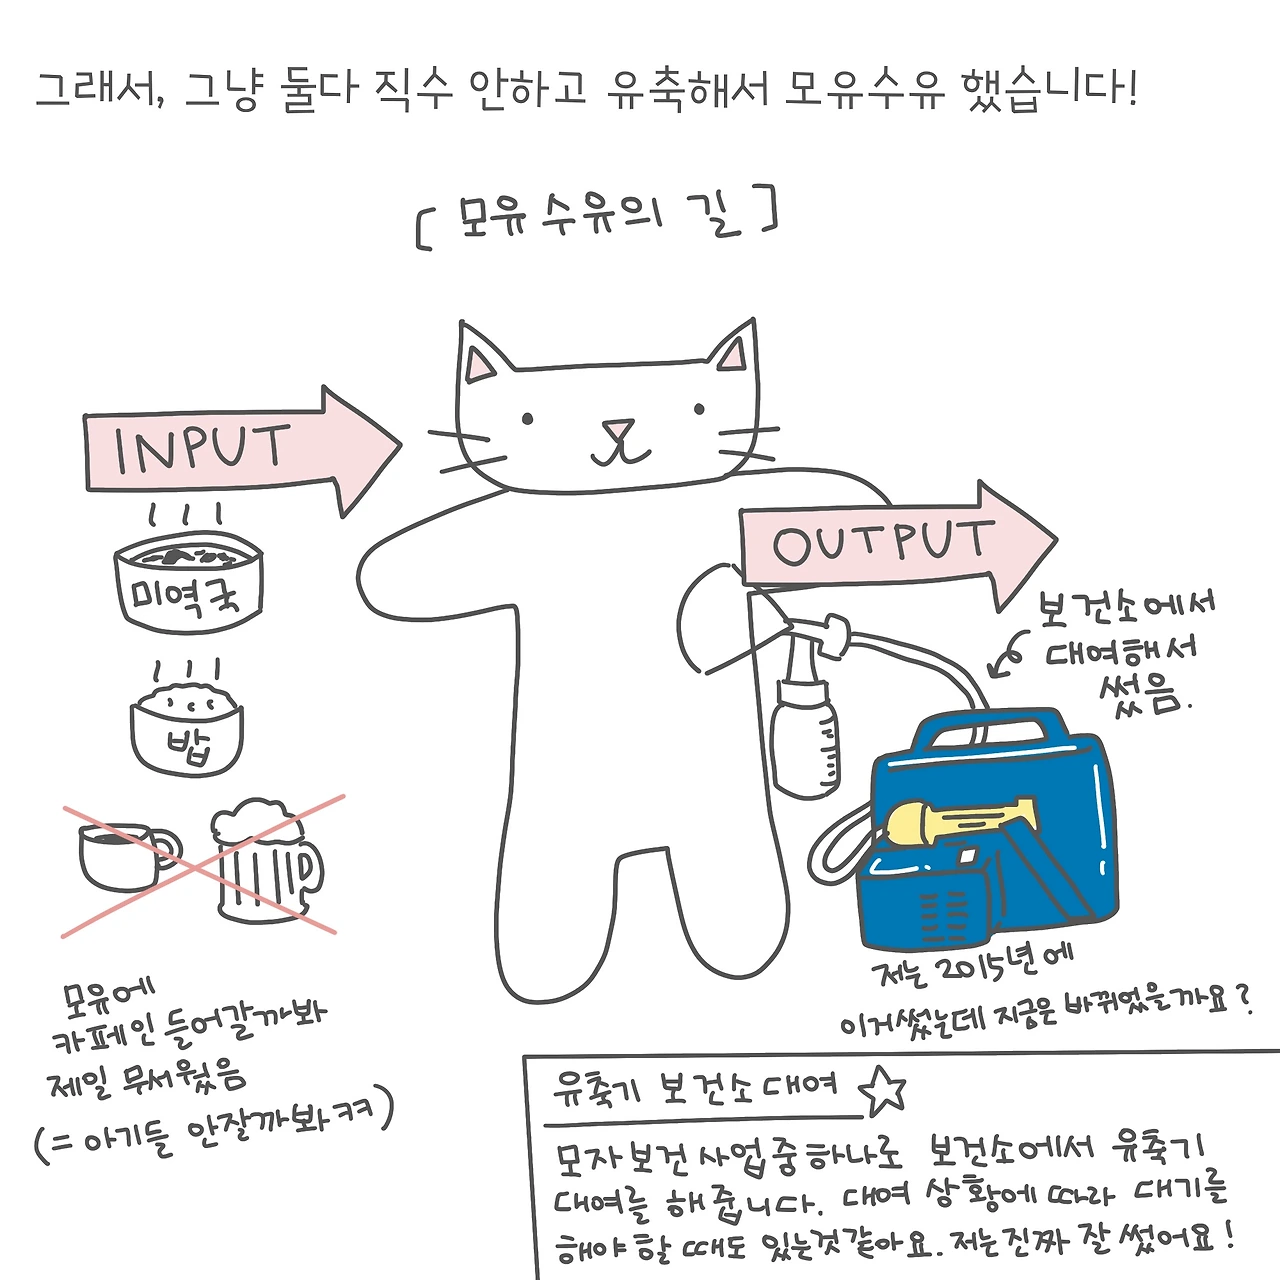 그래서, 그냥 둘다 직수 안하고 유축해서 모유수유 했습니다!
[ 모유 수유의 길 ]
INPUT
미역국
밥
모유에
카페인 들어갈까봐
제일 무서웠음
(= 아기들 안잘까봐 ㅋㅋ)
OUTPUT
보건소에서
대여해서
썼음.
저는 2015년에
이거썼는데 지금은 바뀌었을까요?
유축기 보건소대여 ☆
모자보건 사업중하나로 보건소에서 유축기
대여를 해줍니다. 대여 상황에 따라 대기를
해야 할 때도 있는것같아요. 저는진짜 잘 썼어요!